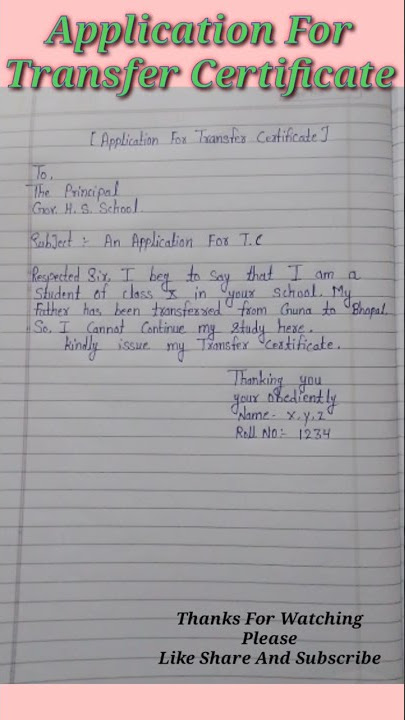 Application For
Transfer Certificate
[ Application For Transfer Certificate ]
To,
The Principal
Gov. H. S. School
Subject :- An Application For T.C
Respected Sir, I beg to say that I am a
student of class X in your school. My
Father has been transferred from Guna to Bhopal.
So, I Cannot Continue my study here.
kindly issue my Transfer Certificate.
Thanking you
your obediently
Name - X, Y, Z
Roll No:- 1234
Thanks For Watching
Please
Like Share And Subscribe